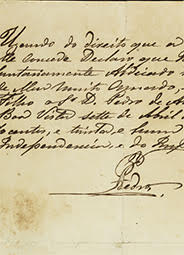 Uzando do direito que a
me Concede Declaro que H
untariamente Abdicado
de Meu Muito Amado,
Filho o Sr. D. Pedro de A
Boa Vista sette de Abril
centos, e trinta e hum
Independencia e do Imp
Pedro